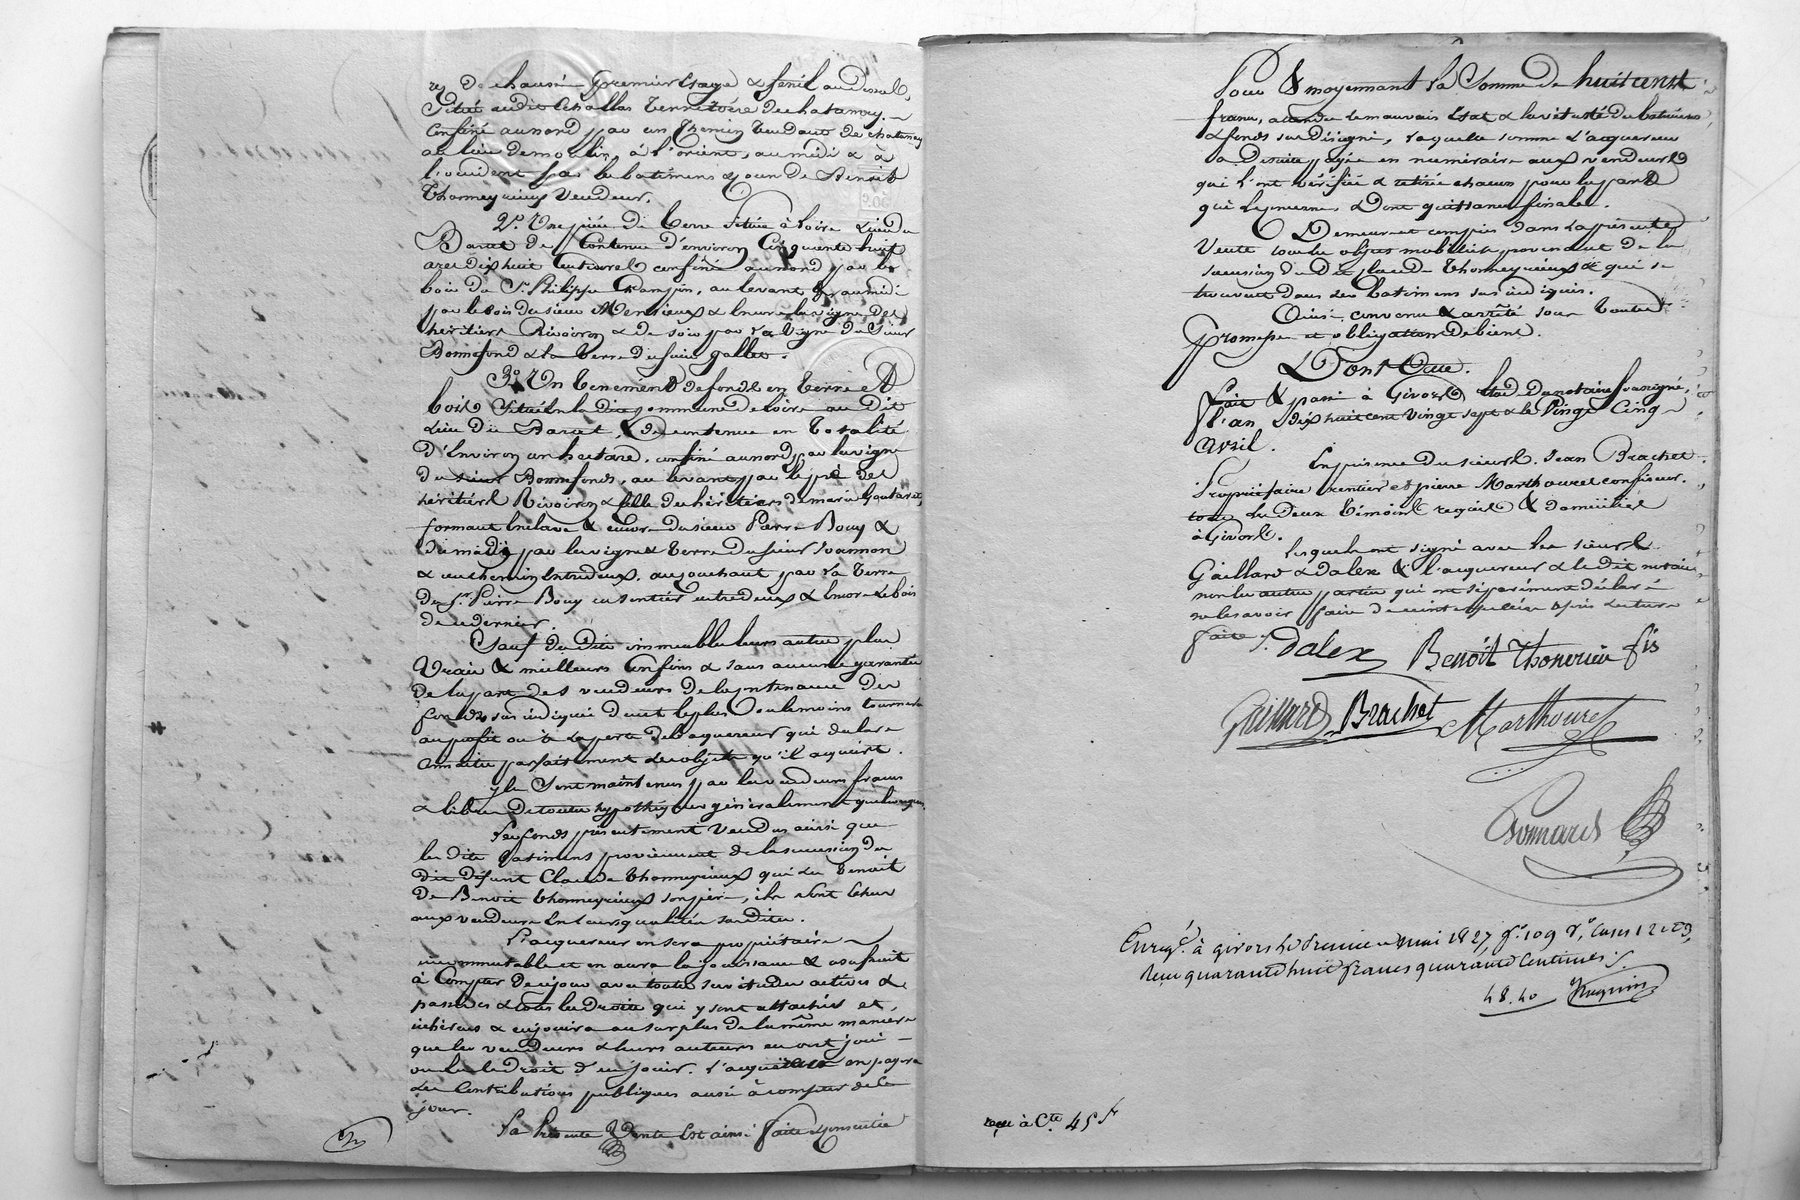 rez de chaussée premier Etage & fenil au dessus,
Situé audit Echallas Territoire de chatanay.
Confiné au nord par un Chemin tendant de chatanay
au lieu de moulin, à l'orient, au midi & à
l'occident par les batimens & jour de Benoit
Thonneyrieux Vendeur.
2°. Une pièce de Terre Située à Loire Lieu du
Barret De Contenue d'environ Cinquante huit
ares dix huit Centiares confiné au nord par les
bois du Sr. Philippe Champin, au levant & au midi
par le bois du sieur Mensieux & encore la vigne des
héritiers Rivoiron & de soir par la Vigne du Sieur
Bonnefond & la terre du sieur gallet.
3° Un tenement de fonds en terre et
bois Situé en la dite commune de loire au dit
Lieu du Barret, & de contenue en Totalité
D'Environ un hectare, confiné au nord par la vigne
du sieur Bonnefonds, au levant par le pré des
héritiers Rivoiron & celle des héritiers de marie Goutaret
formant Enclave & encore du sieur Pierre Bouy &
du midi par la vigne & terre du sieur
& un chemin Entredeux, au couchant par la Terre
de Sr. Pierre Bouy un sentier entredeux & encore le bois
de ce dernier.
Sauf des dits immeubles leurs autres plus
Vrais & meilleurs Confins & sans aucune garantie
de la part des vendeurs de la contenance des
fonds sus indiqués dont le plus ou le moins tournera
au profit ou à la perte de l'acquereur qui déclare
connaitre parfaitement les objets qu'il acquiert.
Ils Sont maintenus par les vendeurs francs
& libres de toutes hypothèques généralement quelconques.
Les fonds présentement Vendus ainsi que
les dits batimens proviennent de la succession du
dit défunt Claude Thonneyrieux qui les tenoit
de Benoit Thonneyrieux son père, ils sont échus
aux vendeurs en leurs qualités susdites.
L'acquereur en sera propriétaire
incommutable et en aura la jouissance & usufruit
à Compter de ce jour avec toutes servitudes actives &
passives & tous les droits qui y sont attachés et
inhérens & en jouira au surplus de la même manière
que les vendeurs & leurs auteurs en ont joui
ou eu le droit d'en jouir. l'acquereur en payera
les Contributions publiques aussi à compter de ce
jour.
La Présente Vente Est ainsi faite & consentie
Pour & moyennant la Somme de huit cent
francs, attendu le mauvais Etat & la vétusté des batimens
& fonds sus désignés, laquelle somme l'acquereur
a De suite payée en numéraire aux vendeurs
qui l'ont vérifiée & retirée chacun pour la part
qui les concerne, & Dont quittance finale.
Demeurent compris dans la présente
Vente tous les objets mobiliers provenant de la
succession du dit Claude Thonneyrieux & qui se
trouvent dans les batimens sus indiqués.
Ainsi convenu & arrêté sous toutes
promesses et obligations de biens.
Dont Acte.
Fait & passé à Givors Etude du notaire soussigné,
l'an Dix huit cent vingt sept & le Vingt Cinq
avril.
En présence des sieurs Jean Brachet
Propriétaire rentier et pierre Marthouret confiseur.
tous les deux témoins requis & domiciliés
à Givors.
Lesquels ont signé avec les sieurs
Gaillard & Dalex & l'acquereur & le dit notaire
non les autres parties qui ont séparément déclaré
ne le savoir faire de ce interpellées après lecture
faite.
Dalex Benoit Thonerieu fis
Gaillard Brachet Marthouret
Ponnard
Enregé. à givors le premier mai 1827, f° 109 Vo, Cases 1 2 et 3,
Reçu quarante huit francs quarante Centimes.
48.40
reçu à Cte 45 f